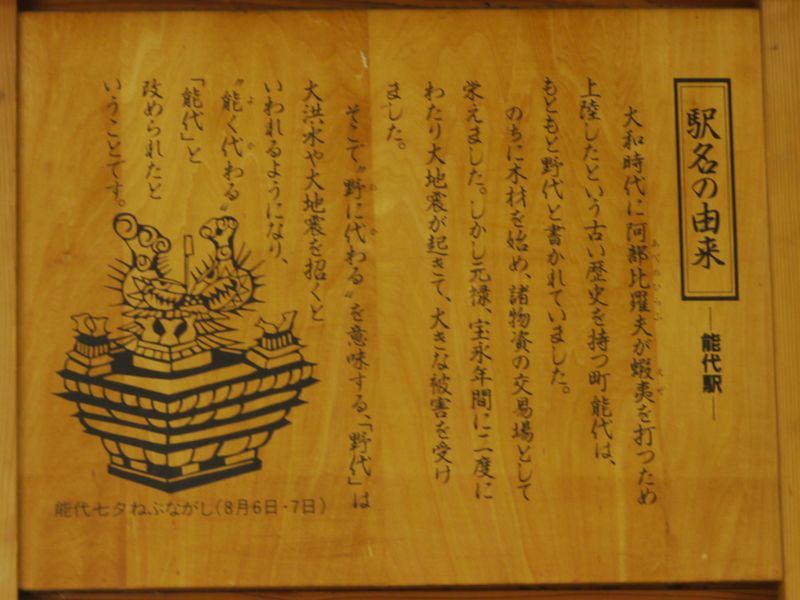 駅名の由来
―能代駅―
大和時代に阿部比羅夫が蝦夷を打つため
上陸したという古い歴史を持つ町能代は、
もともと野代と書かれていました。
のちに木材を始め、諸物資の交易場として
栄えました。しかし元禄、宝永年間に二度に
わたり大地震が起きて、大きな被害を受け
ました。
そこで〝野に代わる〟を意味する、「野代」は
大洪水や大地震を招くと
いわれるようになり、
〝能く代わる〟
「能代」と
改められたと
いうことです。
能代七夕ねぶながし(8月6日・7日)